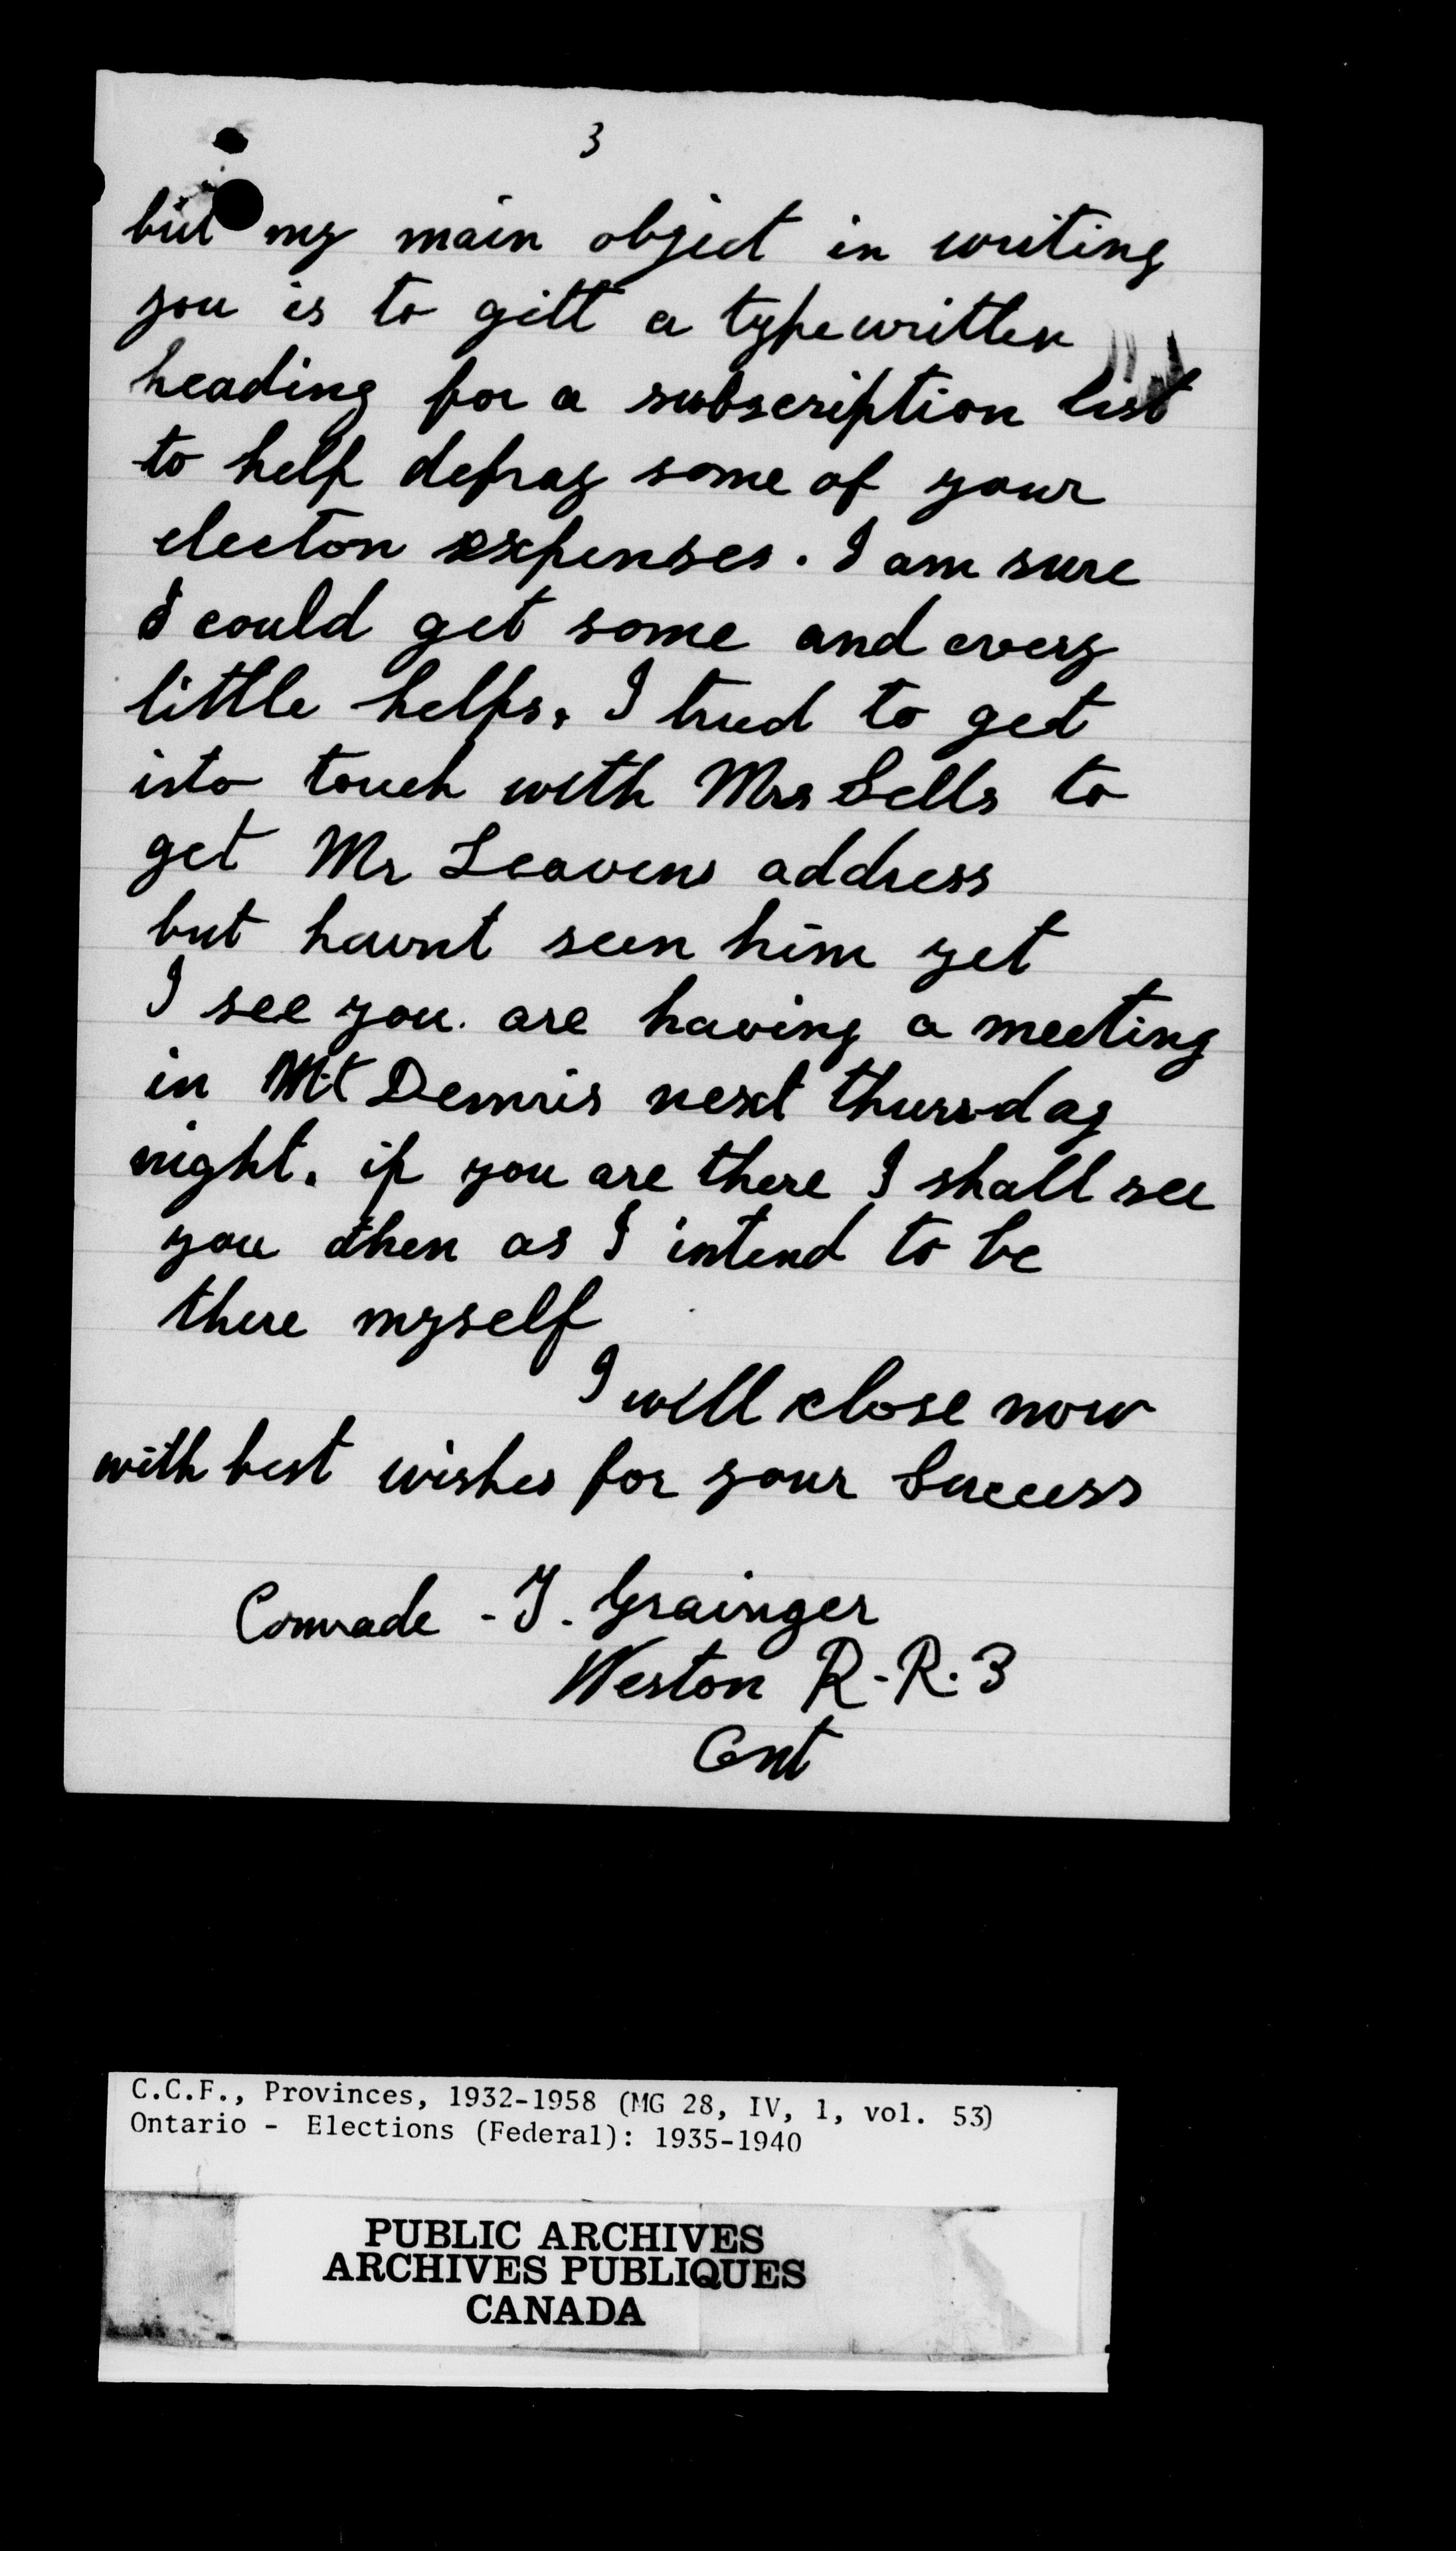 3
but my main object in writing
you is to gett a typewritten
heading for a subscription list
to help defray some of your
electon expenses. I am sure
I could get some and every
little helps. I tried to get
into touch with Mrs Sells to
get Mr Leavens address
but havnt seen him yet
I see you are having a meeting
in Mt Dennis next thursday
night. if you are there I shall see
you then as I intend to be
there myself
I will close now
with best wishes for your Success
Comrade - J. Grainger
Weston R.R.3
Ont
C.C.F., Provinces, 1932-1958 (MG 28, IV, 1, vol. 53)
Ontario - Elections (Federal): 1935-1940
PUBLIC ARCHIVES
ARCHIVES PUBLIQUES
CANADA